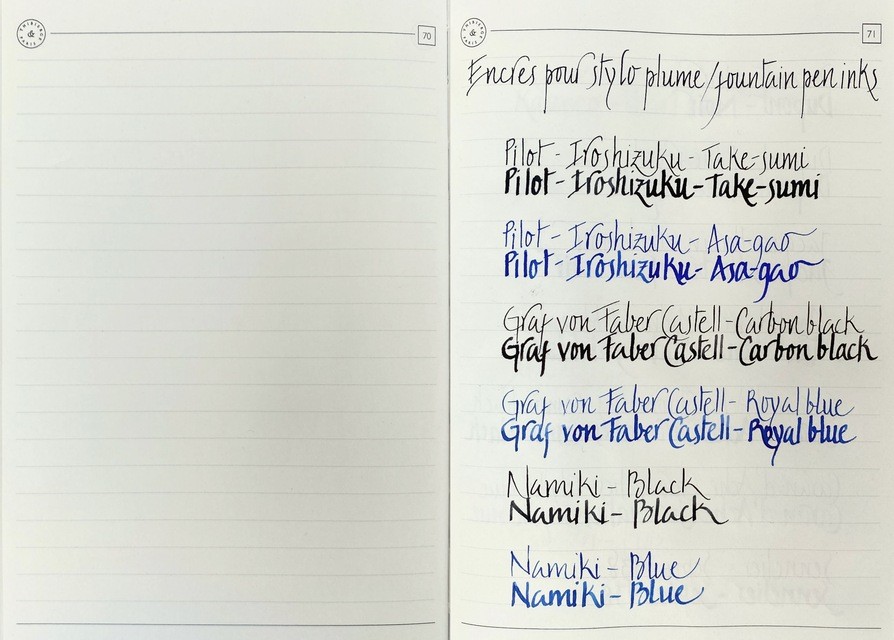 70
71
Encres pour stylo plume/fountain pen inks
Pilot - Iroshizuku - Take-sumi
Pilot - Iroshizuku - Take-sumi
Pilot - Iroshizuku - Asa-gao
Pilot - Iroshizuku - Asa-gao
Graf von Faber Castell - Carbon black
Graf von Faber Castell - Carbon black
Graf von Faber Castell - Royal blue
Graf von Faber Castell - Royal blue
Namiki - Black
Namiki - Black
Namiki - Blue
Namiki - Blue